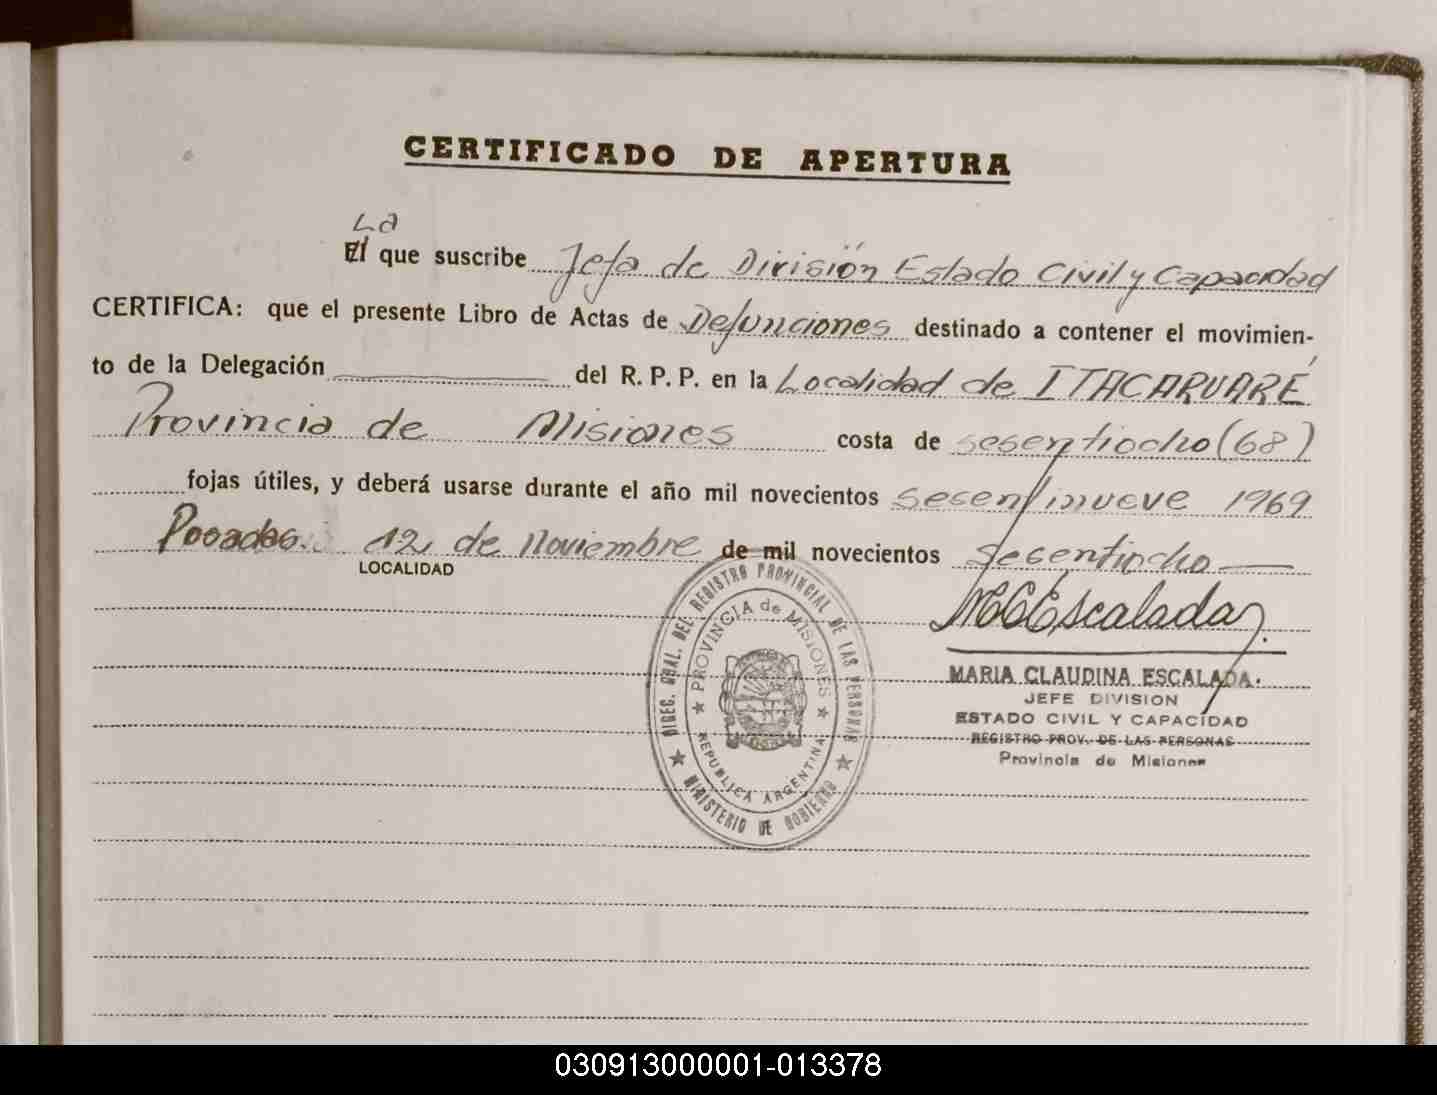 CERTIFICADO DE APERTURA
La
El que suscribe Jefa de División Estado Civil y Capacidad
CERTIFICA: que el presente Libro de Actas de Defunciones destinado a contener el movimien-
to de la Delegación del R. P. P. en la Localidad de ITACARUARÉ
Provincia de Misiones costa de sesentiocho (68)
fojas útiles, y deberá usarse durante el año mil novecientos sesentinueve 1969
Posadas. 12 de noviembre de mil novecientos sesentiocho
LOCALIDAD
MCEscalada
MARIA CLAUDINA ESCALADA.
JEFE DIVISION
ESTADO CIVIL Y CAPACIDAD
REGISTRO PROV. DE LAS PERSONAS
Provincia de Misiones
DIREC. GRAL. DEL REGISTRO PROVINCIAL DE LAS PERSONAS
PROVINCIA de MISIONES
REPUBLICA ARGENTINA
MINISTERIO DE GOBIERNO
030913000001-013378